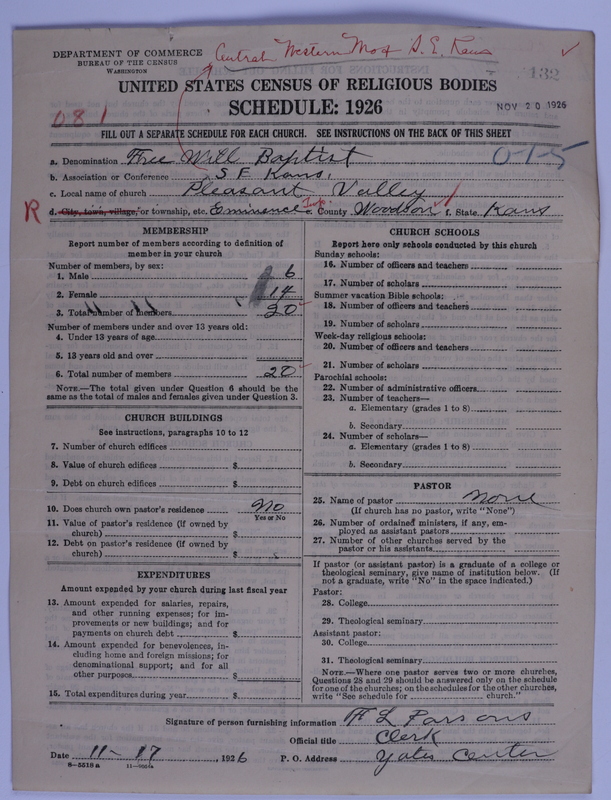 DEPARTMENT OF COMMERCE
BUREAU OF THE CENSUS
WASHINGTON
Central Western Mo & S. E. Kans
132
UNITED STATES CENSUS OF RELIGIOUS BODIES
SCHEDULE: 1926
NOV 20 1926
081
FILL OUT A SEPARATE SCHEDULE FOR EACH CHURCH. SEE INSTRUCTIONS ON THE BACK OF THIS SHEET
a. Denomination Free Will Baptist
0-1-5
b. Association or Conference S E Kans.
c. Local name of church Pleasant Valley
R d. City, town, village, or township, etc. Eminence Twp e. County Woodson f. State Kans
MEMBERSHIP
Report number of members according to definition of
member in your church
Number of members, by sex:
1. Male 6
2. Female 14
3. Total number of members 20
Number of members under and over 13 years old:
4. Under 13 years of age
5. 13 years old and over
6. Total number of members 20
NOTE.—The total given under Question 6 should be
same as the total of males and females given under Question 3.
CHURCH BUILDINGS
See instructions, paragraphs 10 to 12
7. Number of church edifices
8. Value of church edifices $
9. Debt on church edifices $
10. Does church own pastor's residence No
Yes or No
11. Value of pastor's residence (if owned by
church) $
12. Debt on pastor's residence (if owned by
church) $
EXPENDITURES
Amount expended by your church during last fiscal year
13. Amount expended for salaries, repairs,
and other running expenses; for im-
provements or new buildings; and for
payments on church debt $
14. Amount expended for benevolences, in-
cluding home and foreign missions; for
denominational support; and for all
other purposes $
15. Total expenditures during year $
CHURCH SCHOOLS
Report here only schools conducted by this church
Sunday schools:
16. Number of officers and teachers
17. Number of scholars
Summer vacation Bible schools:
18. Number of officers and teachers
19. Number of scholars
Week-day religious schools:
20. Number of officers and teachers
21. Number of scholars
Parochial schools:
22. Number of administrative officers
23. Number of teachers—
a. Elementary (grades 1 to 8)
b. Secondary
24. Number of scholars—
a. Elementary (grades 1 to 8)
b. Secondary
PASTOR
25. Name of pastor None
(If church has no pastor, write "None")
26. Number of ordained ministers, if any, em-
ployed as assistant pastors
27. Number of other churches served by the
pastor or his assistants
If pastor (or assistant pastor) is a graduate of a college or
theological seminary, give name of institution below. (If
not a graduate, write "No" in the space indicated.)
Pastor:
28. College
29. Theological seminary
Assistant pastor:
30. College
31. Theological seminary
NOTE.—Where one pastor serves two or more churches,
Questions 28 and 29 should be answered only on the schedule
for one of the churches; on the schedules for the other churches,
write "See schedule for church."
Signature of person furnishing information H L Parsons
Official title Clerk
Date 11-17, 1926 P. O. Address Yates Center
8-5518 a